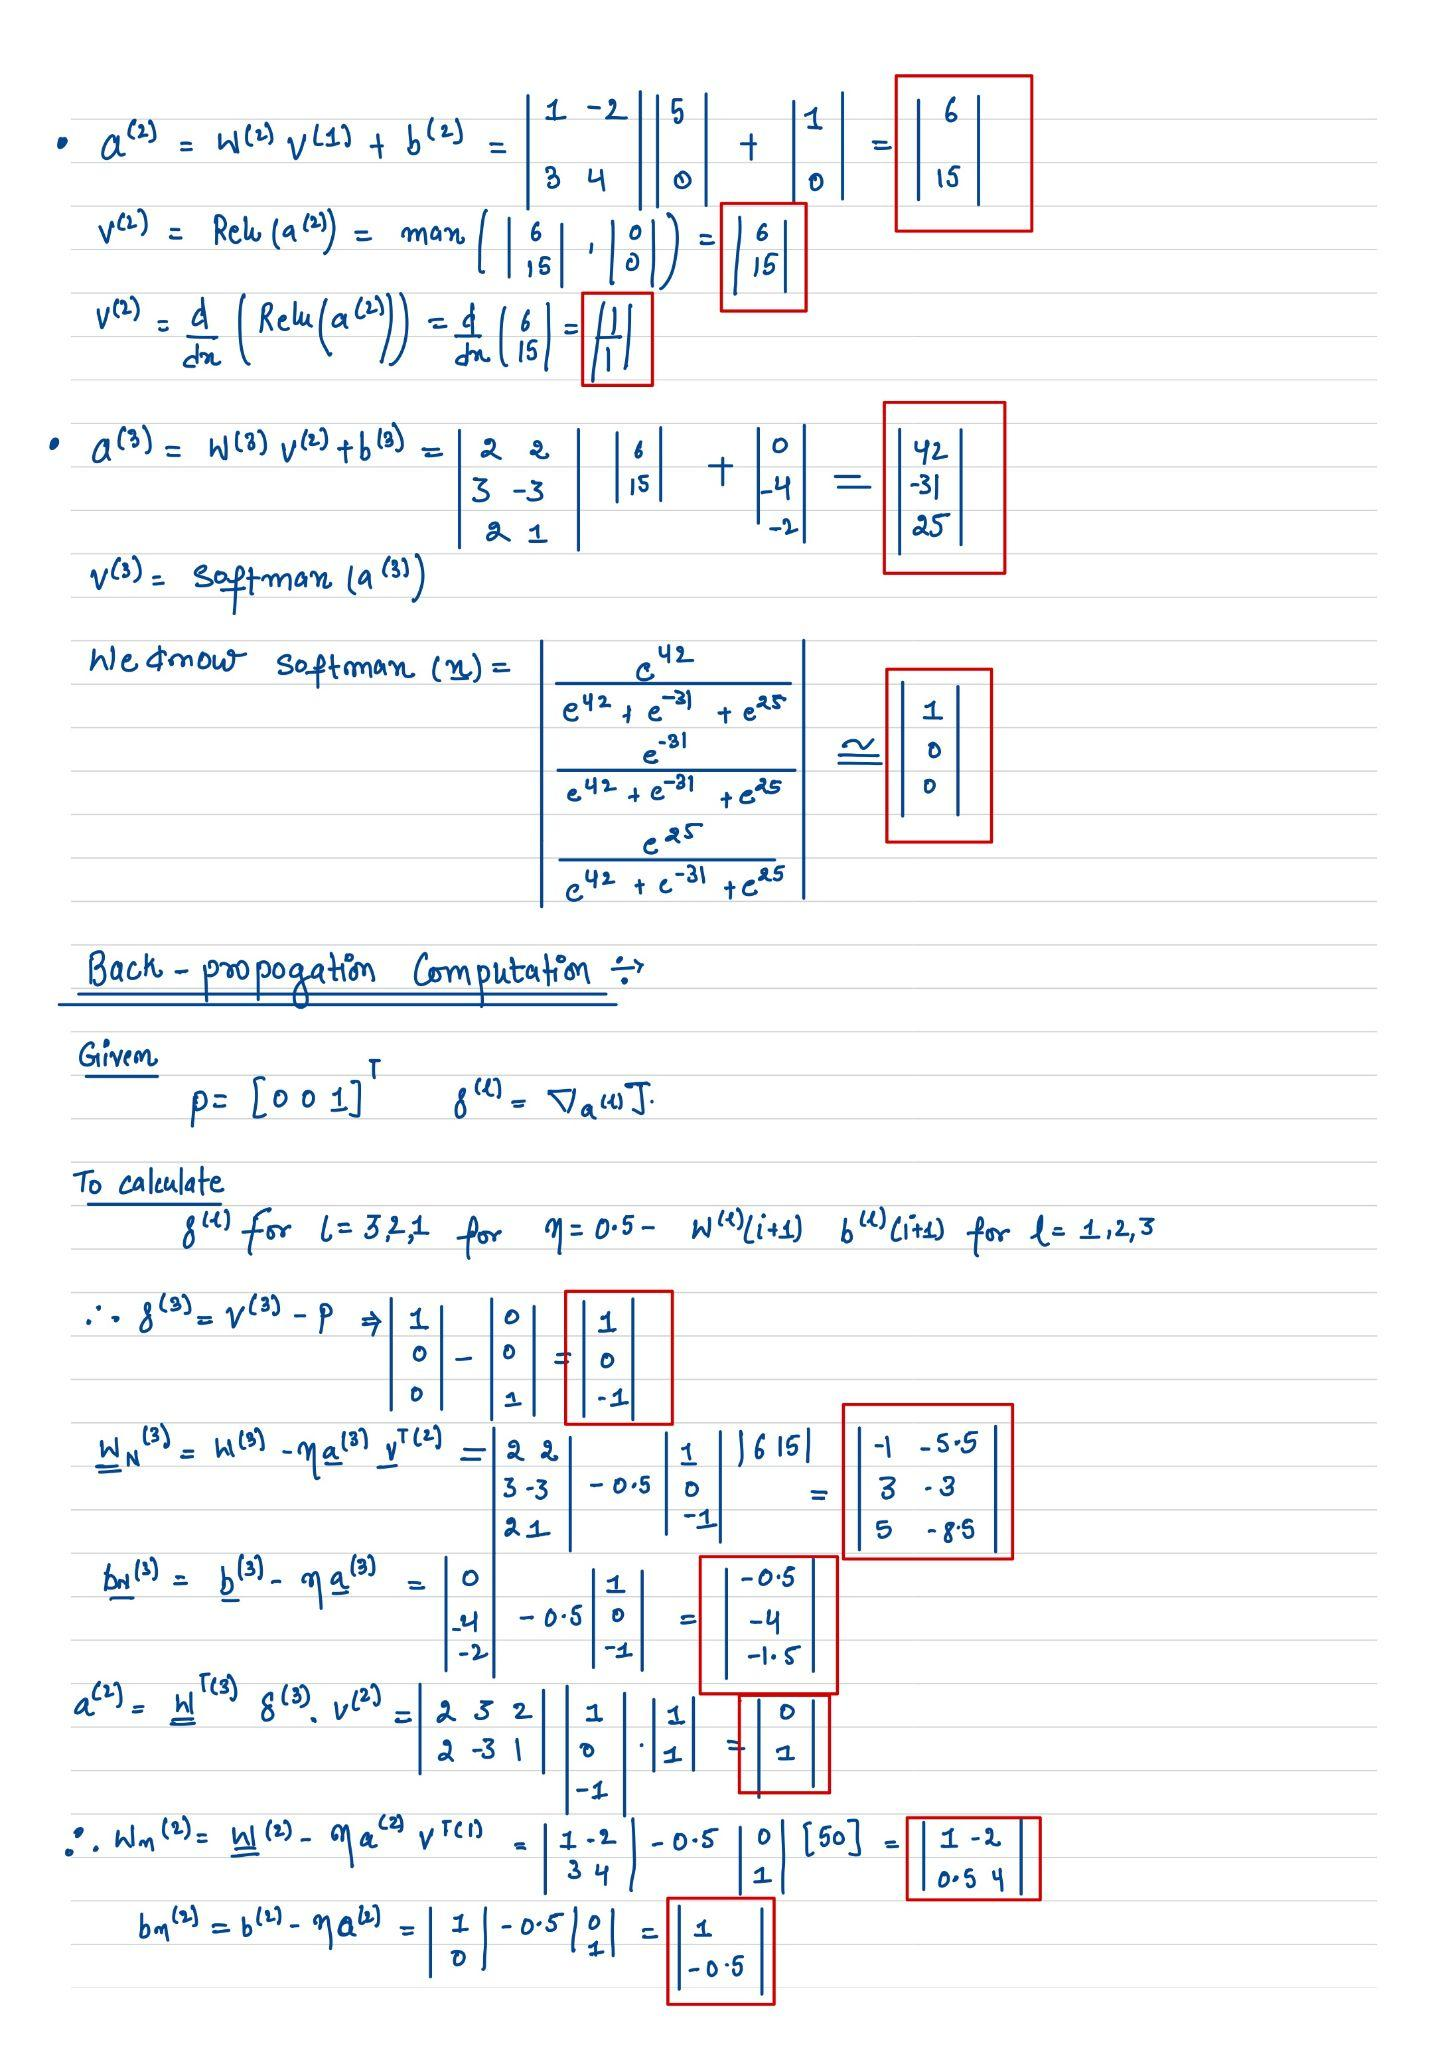 • a^(2) = W^(2) v^(1) + b^(2) = |1 -2; 3 4| |5; 0| + |1; 0| = |6; 15|
v^(2) = Relu (a^(2)) = man (|6; 15| , |0; 0|) = |6; 15|
v^(2) = d/dn (Relu (a^(2))) = d/dn (6; 15| = |1; 1|
• a^(3) = W^(3) v^(2) + b^(3) = |2 2; 3 -3; 2 1| |6; 15| + |0; -4; -2| = |42; -31; 25|
v^(3) = Softman (a^(3))
We know Softman (n) = |e^42 / (e^42 + e^-31 + e^25); e^-31 / (e^42 + e^-31 + e^25); e^25 / (e^42 + e^-31 + e^25)| ≅ |1; 0; 0|
Back - propogation Computation ÷→
Given
p = [0 0 1]^T δ^(l) = ∇a^(l) J.
To calculate
δ^(l) for l = 3,2,1 for η = 0.5 - W^(l)(i+1) b^(l)(i+1) for l = 1,2,3
∴ δ^(3) = v^(3) - P ⇒ |1; 0; 0| - |0; 0; 1| = |1; 0; -1|
W_N^(3) = W^(3) - η a^(3) v^T(2) = |2 2; 3 -3; 2 1| - 0.5 |1; 0; -1| |6 15| = |-1 -5.5; 3 -3; 5 -8.5|
b_N^(3) = b^(3) - η a^(3) = |0; -4; -2| - 0.5 |1; 0; -1| = |-0.5; -4; -1.5|
a^(2) = W^T(3) δ^(3) . v^(2) = |2 3 2; 2 -3 1| |1; 0; -1| . |1; 1| = |0; 1|
∴ W_n^(2) = W^(2) - η a^(2) v^T(1) = |1 -2; 3 4| - 0.5 |0; 1| [5 0] = |1 -2; 0.5 4|
b_n^(2) = b^(2) - η a^(2) = |1; 0| - 0.5 |0; 1| = |1; -0.5|